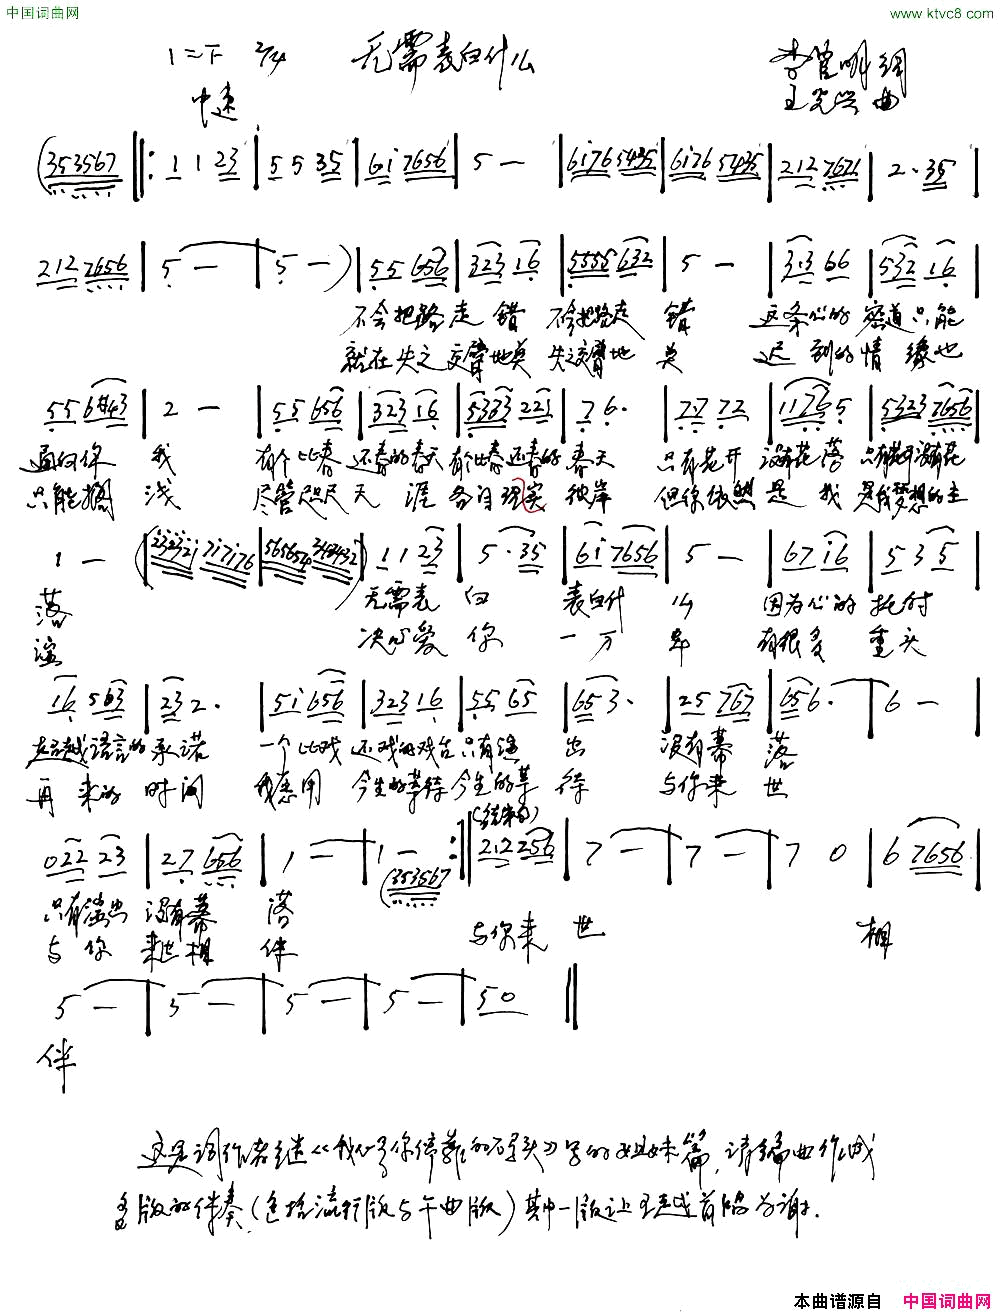 中国词曲网
www.ktvc8.com
1=F 2/4 无需表白什么 李 明词
中速 王 曲
(353567 ‖: 1 1 23 | 5 5 35 | 6i 7656 | 5 — | 6i76 5435 | 6i76 5435 | 212 7671 | 2· 35 |
212 7656 | 5 — | 5 — ) | 55 656 | 323 16 | 5555 632 | 5 — | 3·3 66 | 532 16 |
不会把路走错 不会把路走错 这条心的密道只能
就在失之交臂地 失之交臂地 迟到的情缘也
556#43 | 2 — | 55 656 | 323 16 | 5323 221 | 76· | 77 72 | 1176 5 | 5323 7656 |
通向你我 有个比春还春的春天 有个比春还春的春天 只有花开没有花落 只有花开没有花
只能搁浅 尽管咫尺天涯 各自 彼岸 但你依然是我 是我梦想的主
1 — | 1 1 23 | 5 · 35 | 6i 7656 | 5 — | 67 i6 | 5 3 5 |
落 无需表白 表白什么 因为心的托付
演 决心爱你一万年 有很多重头
16 563 | 23 2· | 5i 656 | 323 16 | 55 65 | 65 3· | 25 767 | 656· | 6 — |
超越语言的承诺 一个比戏还戏的戏台 只有演出 没有幕落
再来的时间 我愿用今生的等待 今生的等待 与你来世
(结束句)
022 23 | 27 656 | 1 — | 1 — :‖ 212 256 | 7 — | 7 — | 7 0 | 6 7656 |
(353567
只有演出 没有幕落 与你来世 相
与你来世相伴
5 — | 5 — | 5 — | 5 — | 50 ‖
伴
这是词作者继《我心为你停靠的码头》写的姐妹篇，请编曲作成
多版的伴奏(包括流行版与 曲版)其中一版让王 越首唱为谢.
本曲谱源自 中国词曲网